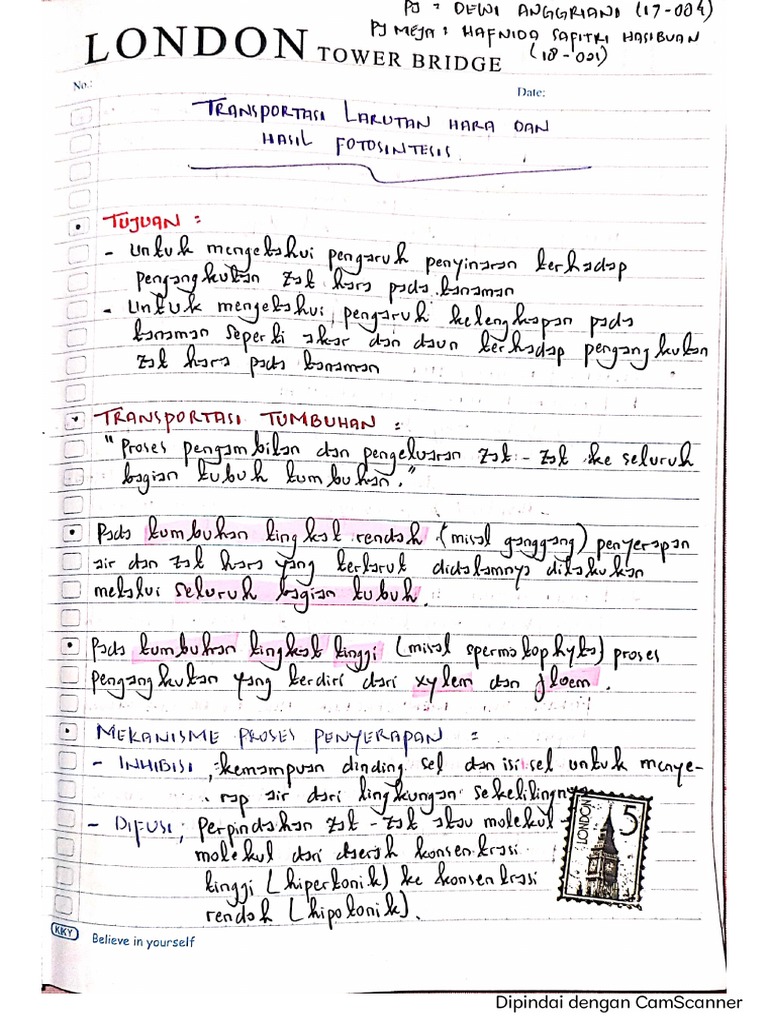 PJ : DEWI ANGGRIANI (17-004)
PJ MEJA : HAFNIDA SAFITRI HASIBUAN
(18-021)
LONDON TOWER BRIDGE
No.:
Date:
TRANSPORTASI LARUTAN HARA DAN
HASIL FOTOSINTESIS
• TUJUAN :
- Untuk mengetahui pengaruh penyinaran terhadap
pengangkutan zat hara pada tanaman
- Untuk mengetahui pengaruh kelengkapan pada
tanaman seperti akar dan daun terhadap pengangkutan
zat hara pada tanaman
• TRANSPORTASI TUMBUHAN :
"Proses pengambilan dan pengeluaran zat-zat ke seluruh
bagian tubuh tumbuhan."
• Pada tumbuhan tingkat rendah (misal ganggang) penyerapan
air dan zat hara yang terlarut didalamnya dilakukan
melalui seluruh bagian tubuh.
• Pada tumbuhan tingkat tinggi (misal spermatophyta) proses
pengangkutan yang terdiri dari xylem dan floem.
• MEKANISME PROSES PENYERAPAN :
- INHIBISI ; kemampuan dinding sel dan isi sel untuk menye-
rap air dari lingkungan sekelilingnya.
- DIFUSI ; Perpindahan zat-zat atau molekul-
molekul dari daerah konsentrasi
tinggi (hipertonik) ke konsentrasi
rendah (hipotonik).
LONDON 5
KKY Believe in yourself
Dipindai dengan CamScanner